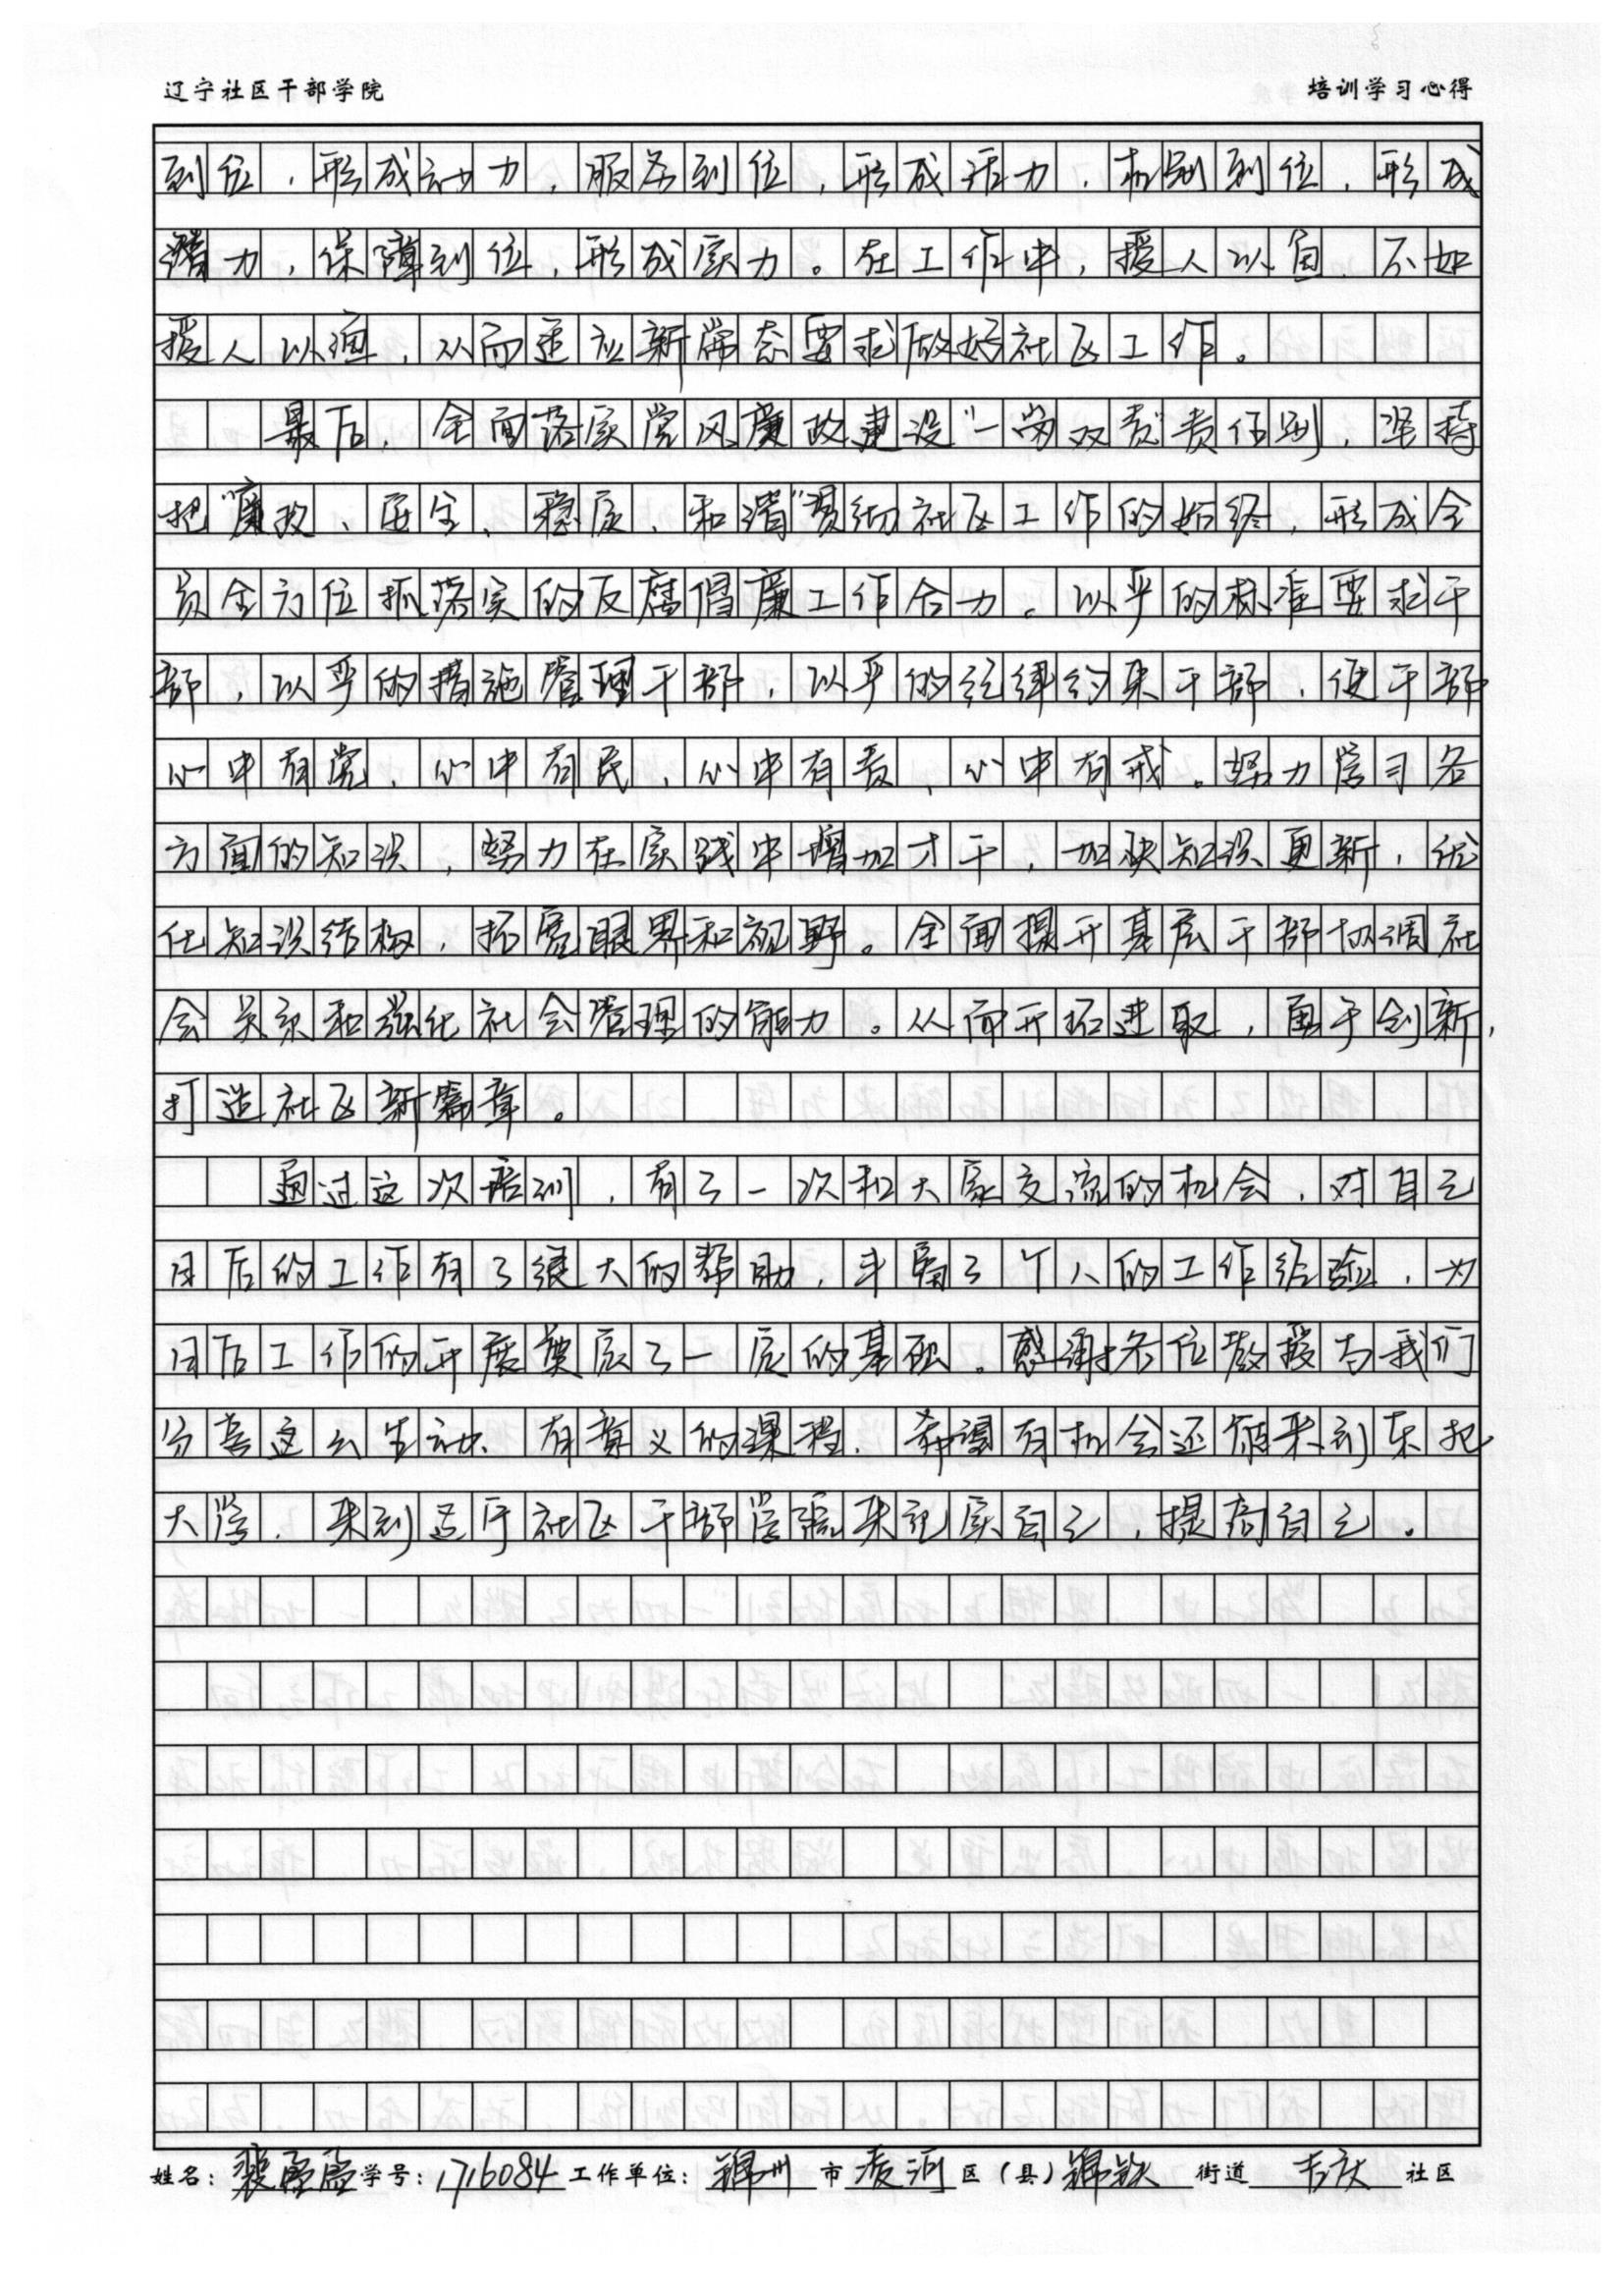 辽宁社区干部学院 培训学习心得
到位，形成动力，服务到位，形成活力，机制到位，形成
潜力，保障到位，形成实力。在工作中，授人以鱼 不如
授人以渔，从而适应新常态要求做好社区工作。
最后，全面落实党风廉政建设“一岗双责”责任制，坚持
把“廉政、安全、稳定、和谐”贯彻社区工作的始终，形成全
员全方位抓落实的反腐倡廉工作合力。以严的标准要求干
部，以严的措施管理干部，以严的纪律约束干部，使干部
心中有党，心中有民，心中有责，心中有戒。努力学习各
方面的知识，努力在实践中增加才干，加快知识更新，优
化知识结构，拓宽眼界和视野。全面提升基层干部协调社
会关系和强化社会管理的能力。从而开拓进取，勇于创新，
打造社区新篇章。
通过这次培训，有了一次和大家交流的机会，对自己
日后的工作有了很大的帮助，丰富了个人的工作经验，为
日后工作的开展奠定了一定的基础。感谢各位教授为我们
分享这么生动、有意义的课程，希望有机会还能来到东北
大学，来到辽宁社区干部学院来充实自己，提高自己。
姓名：裴 学号：1716084 工作单位：锦州 市 凌河 区（县）锦铁 街道 吉庆 社区